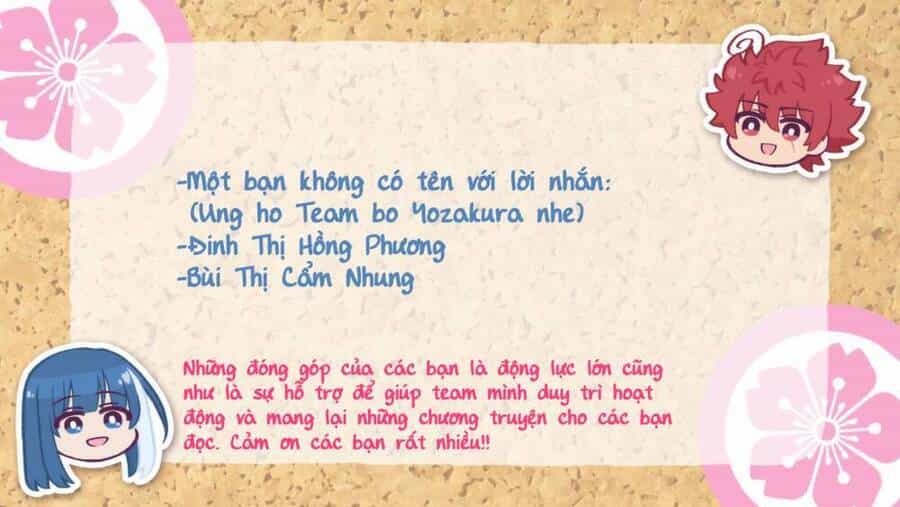 -Một bạn không có tên với lời nhắn:
(Ung ho Team bo Yozakura nhe)
-Đinh Thị Hồng Phương
-Bùi Thị Cẩm Nhung
Những đóng góp của các bạn là động lực lớn cũng
như là sự hỗ trợ để giúp team mình duy trì hoạt
động và mang lại những chương truyện cho các bạn
đọc. Cảm ơn các bạn rất nhiều!!